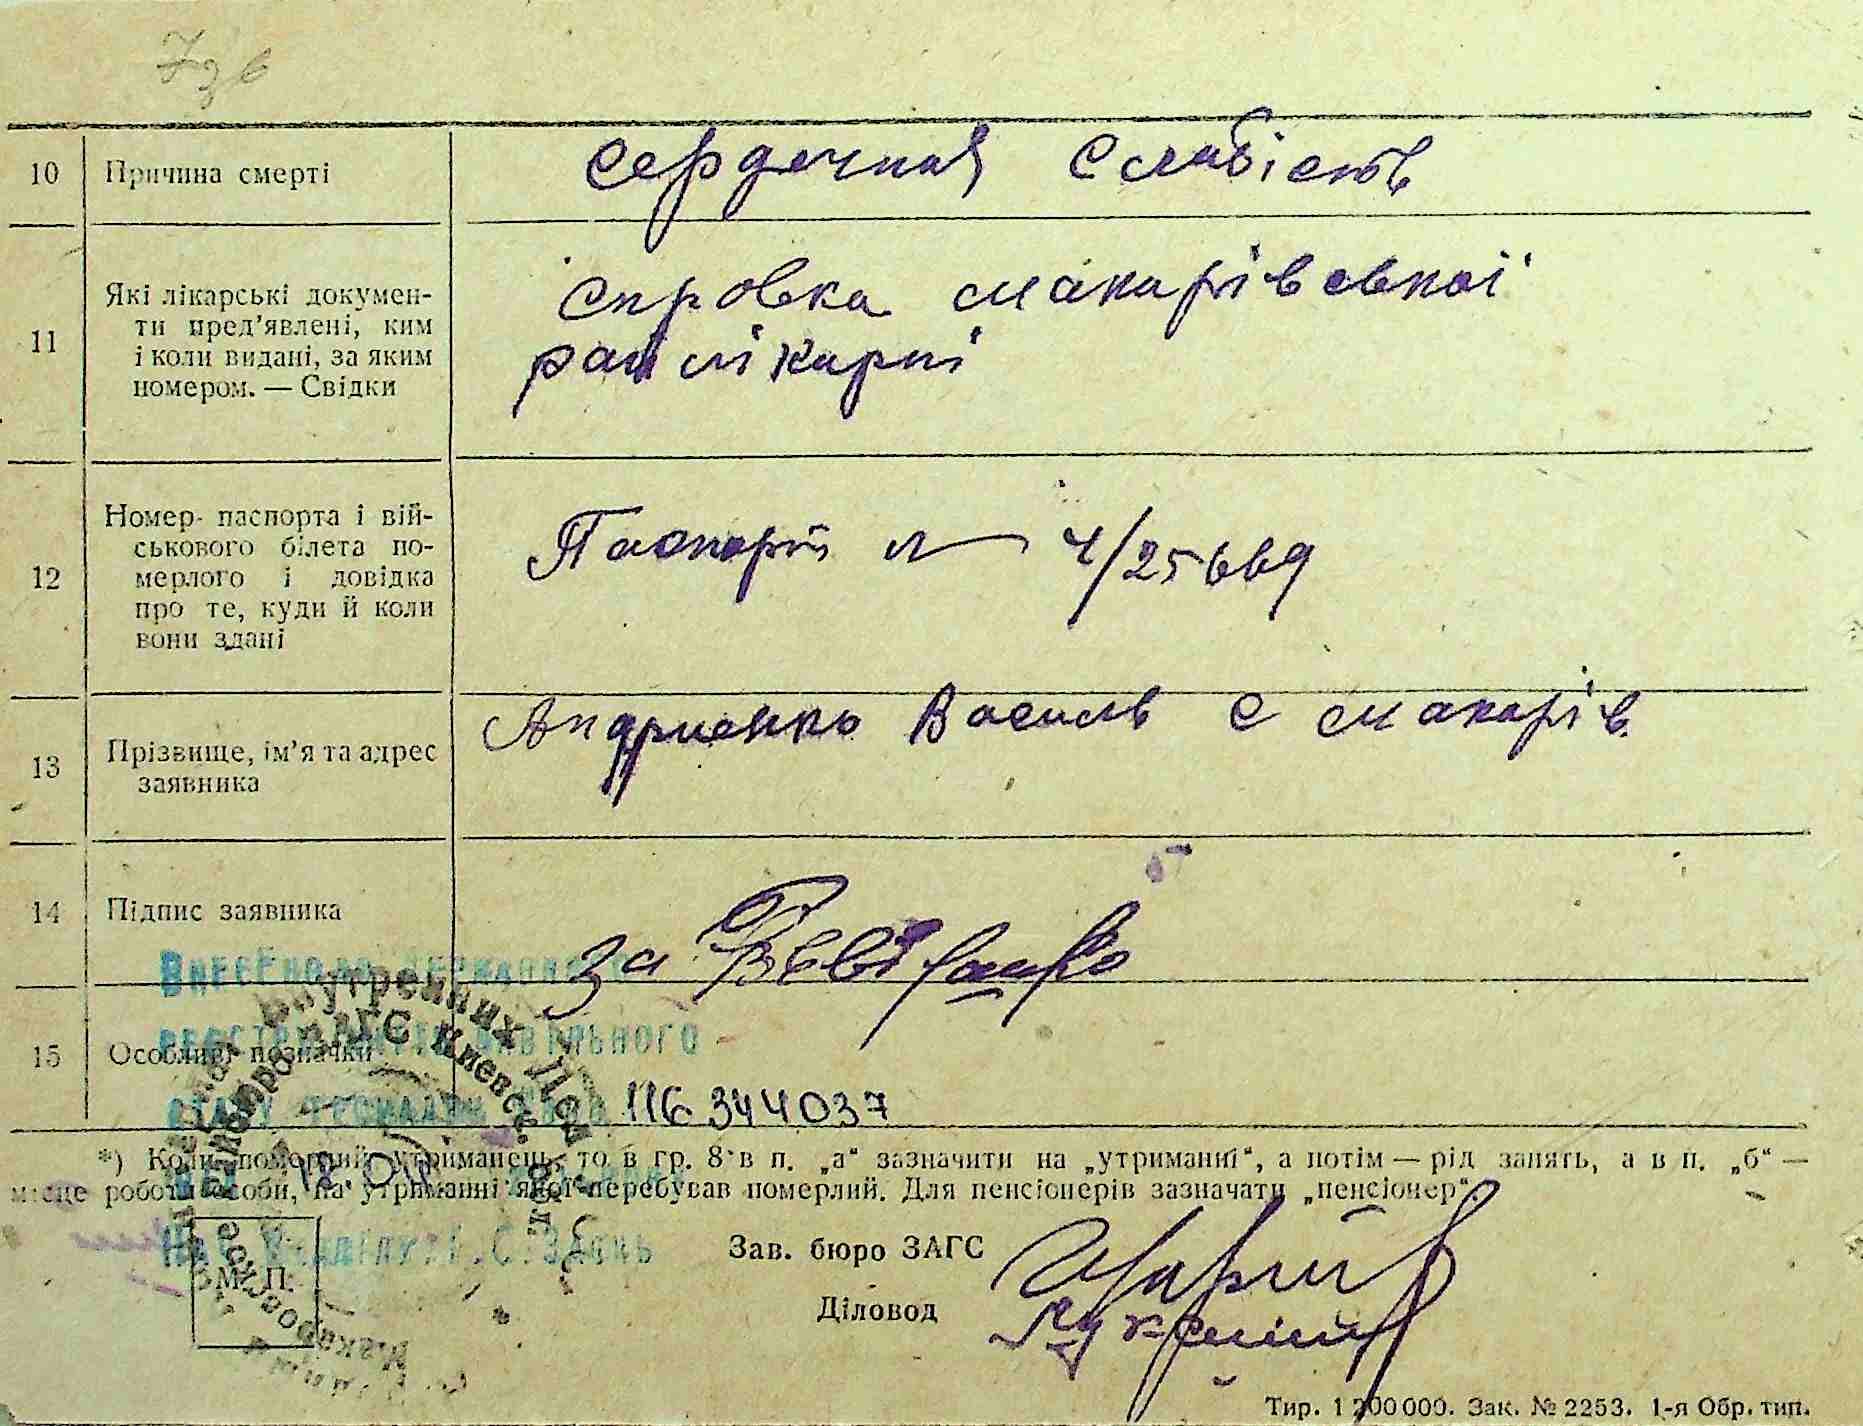 10 Причина смерті сердечная слабість
11 Які лікарські докумен-
ти пред'явлені, ким
і коли видані, за яким
номером. — Свідки
справка макарівської
рай лікарні
12 Номер паспорта і вій-
ськового білета по-
мерлого і довідка
про те, куди й коли
вони здані
Паспорт № 4/25669
13 Прізвище, ім'я та адрес
заявника
Андриенко Василь с макарів
14 Підпис заявника
за
15 Особливі позначки
Внесено до Державного
реєстру актів цивільного
стану громадян 116344037
*) Коли померлий утриманець, то в гр. 8 в п. „а“ зазначити на „утриманні“, а потім — рід занять, а в п. „б“ —
місце роботи особи, на утриманні якої перебував померлий. Для пенсіонерів зазначати „пенсіонер“.
М. П.
Зав. бюро ЗАГС
Діловод
Внутренних Дел
ЗАГС Киевск.
Тир. 1 200 000. Зак. № 2253. 1-я Обр. тип.